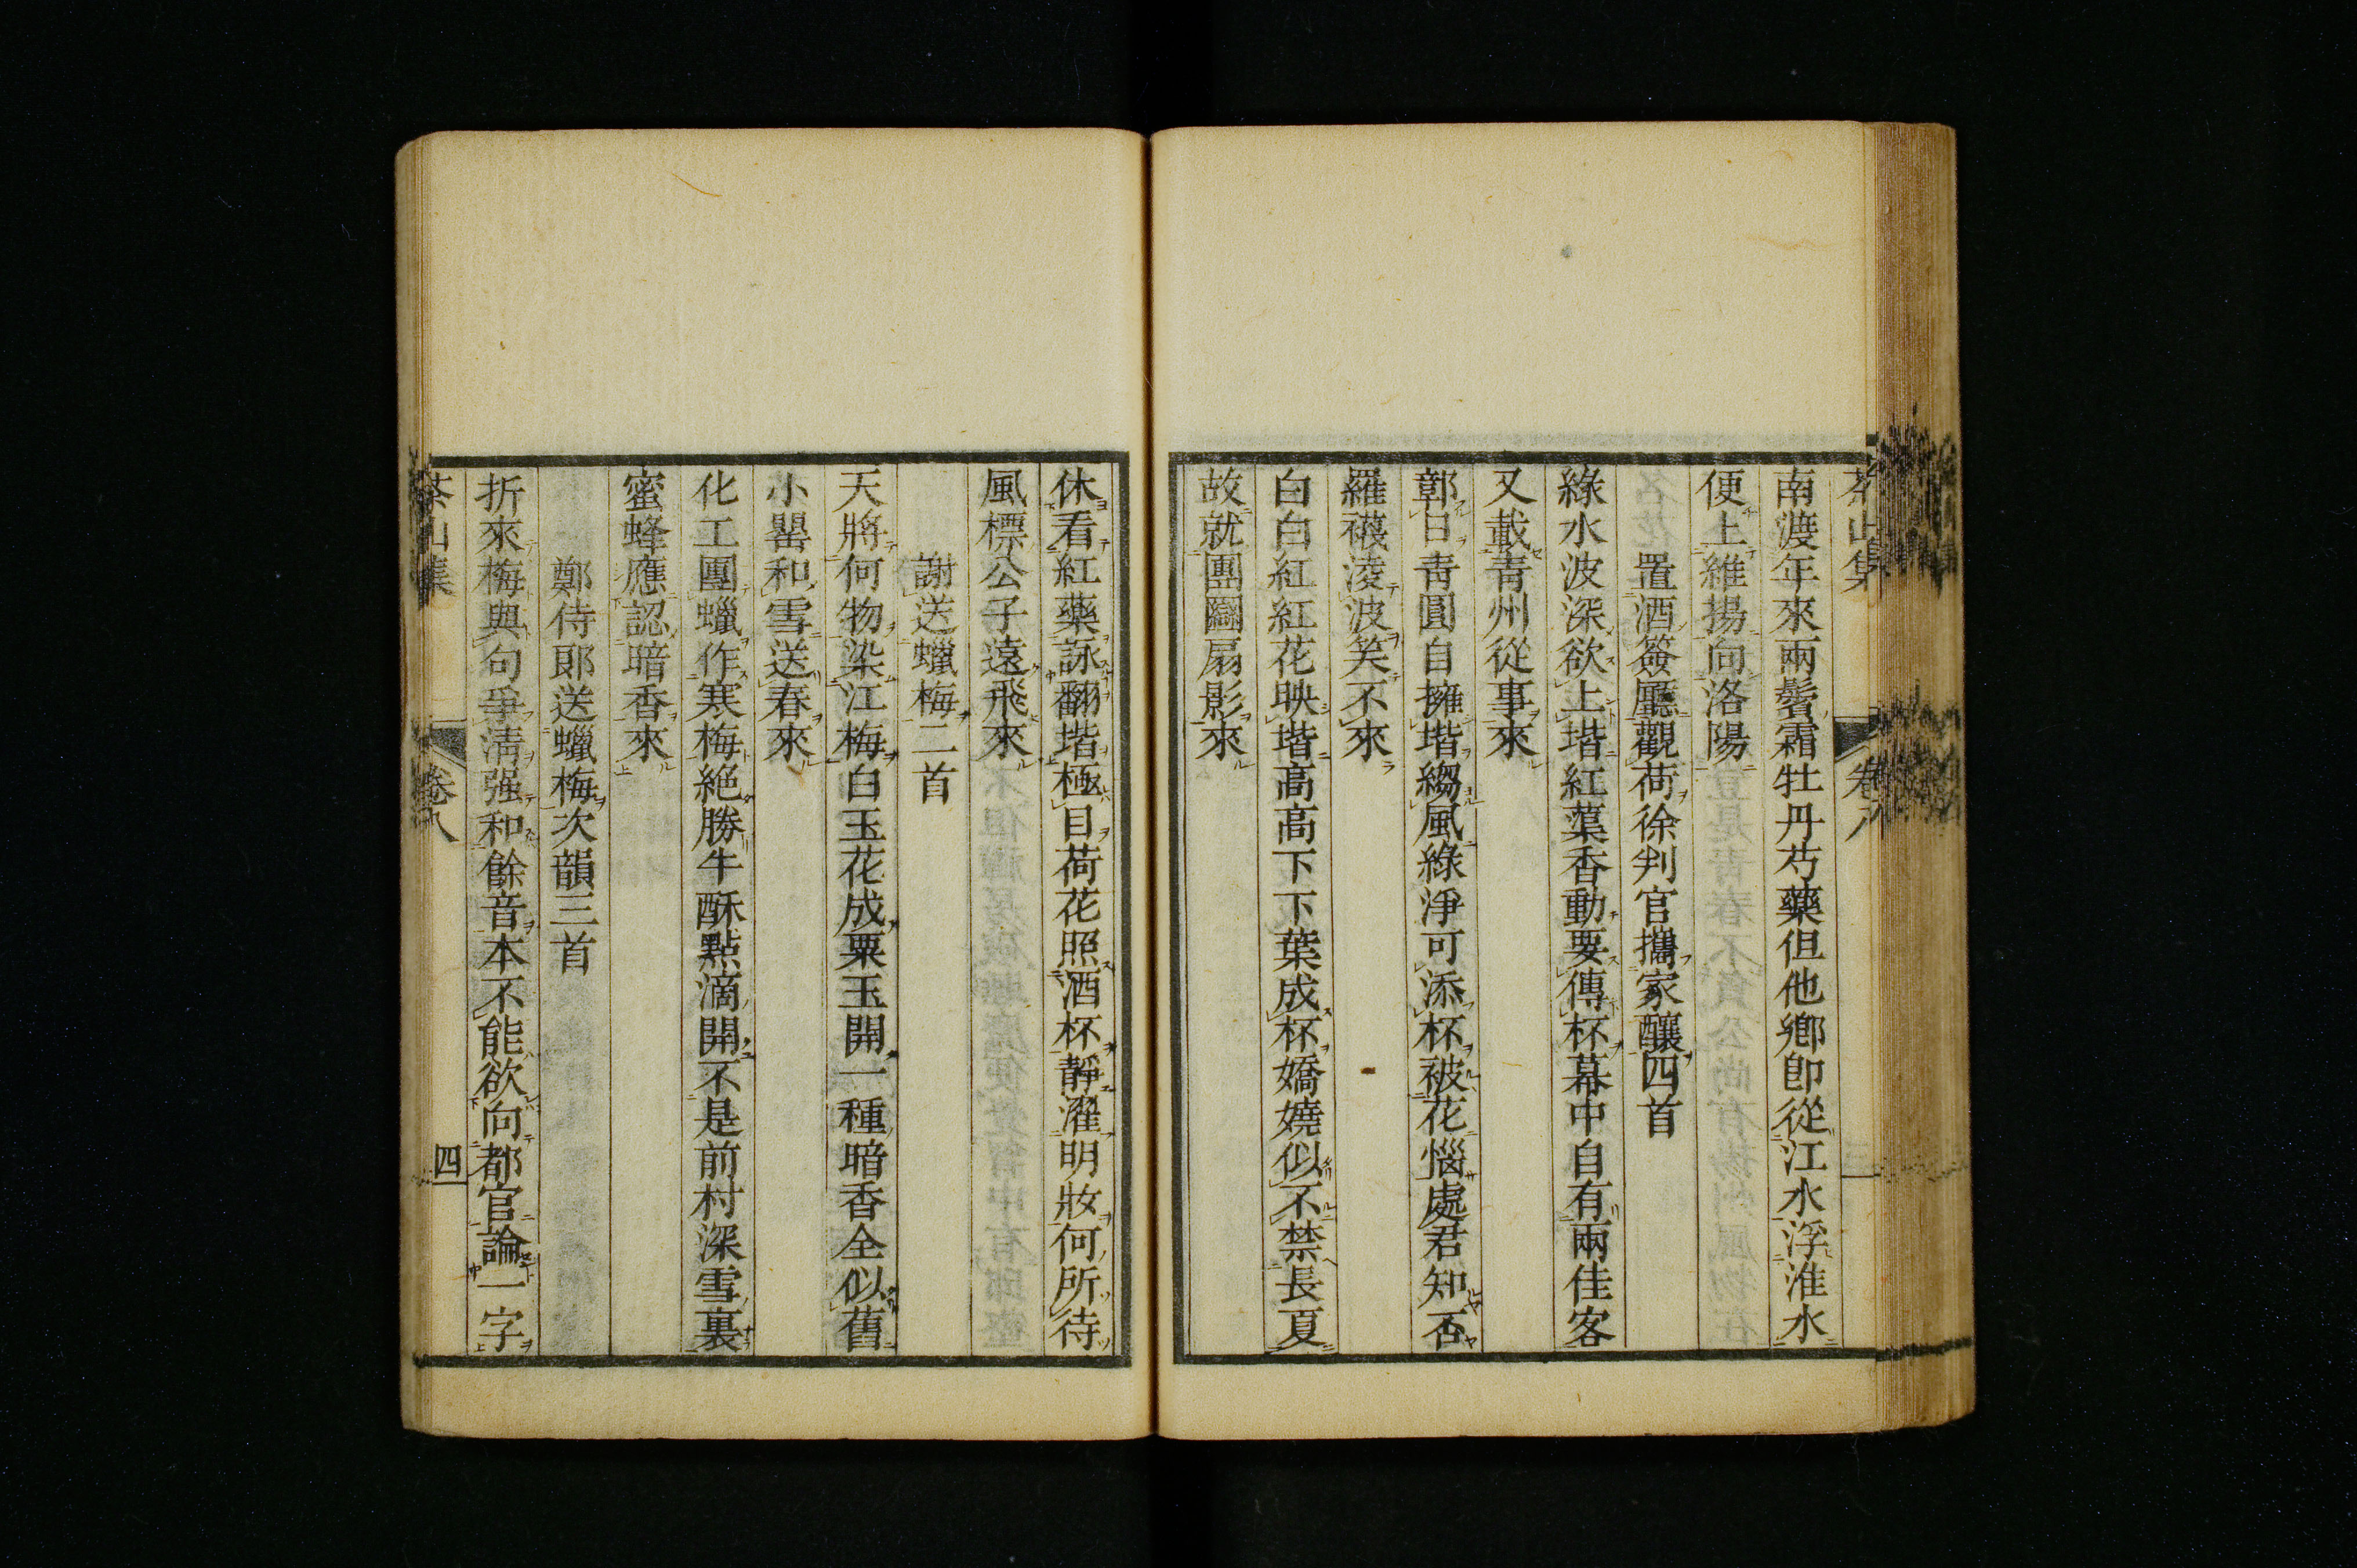 茶山集 卷八
南渡年來兩鬢霜牡丹芍藥但他鄉卽從江水浮淮水
便上維揚向洛陽
置酒簽廳觀荷徐判官攜家釀四首
綠水波深欲上堦紅蕖香動要傳杯幕中自有兩佳客
又載靑州從事來
鄣日靑圓自擁堦縐風綠淨可添杯被花惱處君知否
羅襪淩波笑不來
白白紅紅花映堦高高下下葉成杯嬌嬈似不禁長夏
故就團圝扇影來
休看紅藥詠翻堦極目荷花照酒杯靜濯明妝何所待
風標公子遠飛來
謝送蠟梅二首
天將何物染江梅白玉花成粟玉開一種暗香全似舊
小罌和雪送春來
化工團蠟作寒梅絕勝牛酥點滴開不是前村深雪裏
蜜蜂應認暗香來
鄭侍郞送蠟梅次韻三首
折來梅與句爭淸强和餘音本不能欲向都官論一字
茶山集 卷八 四